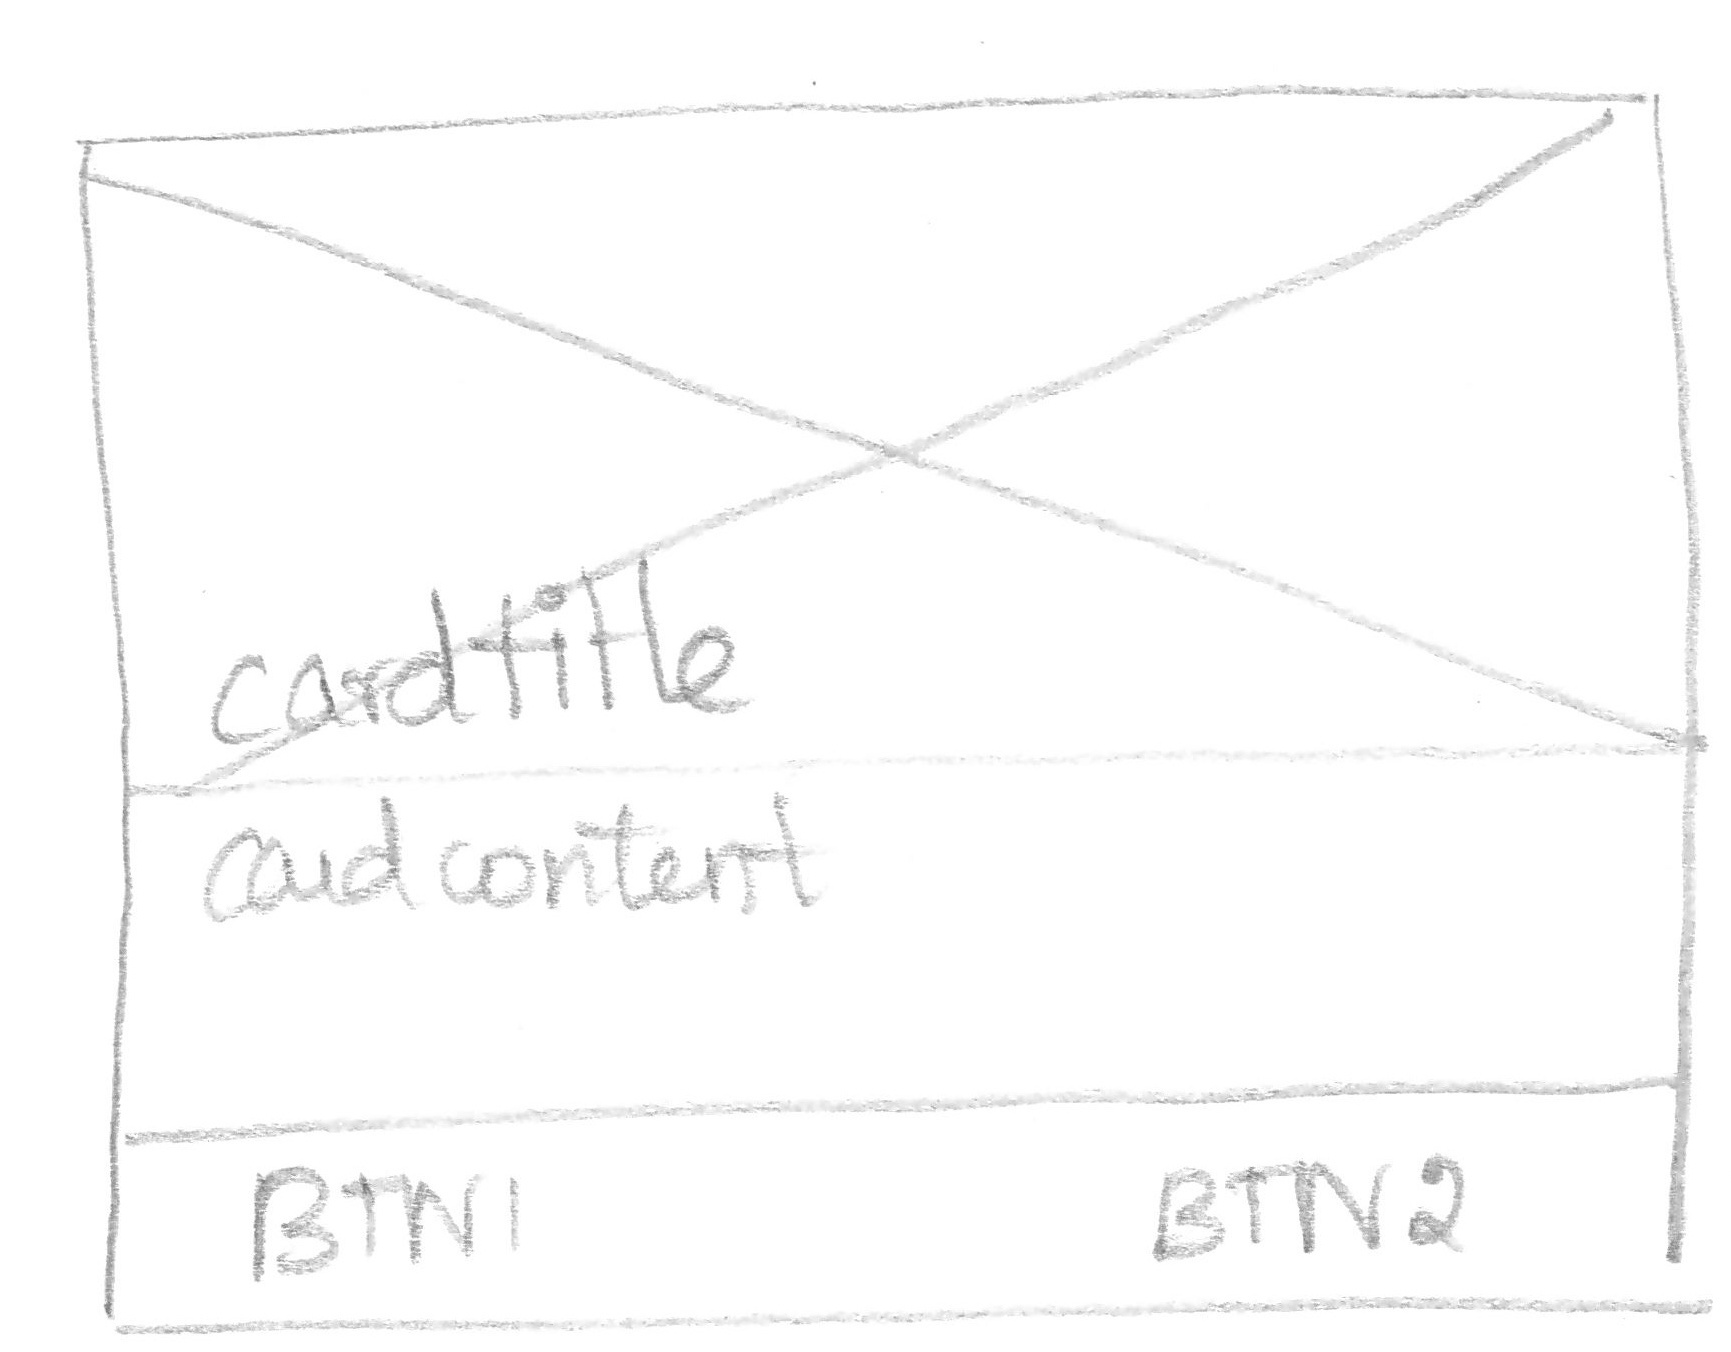 card title
card content
BTN1
BTN2